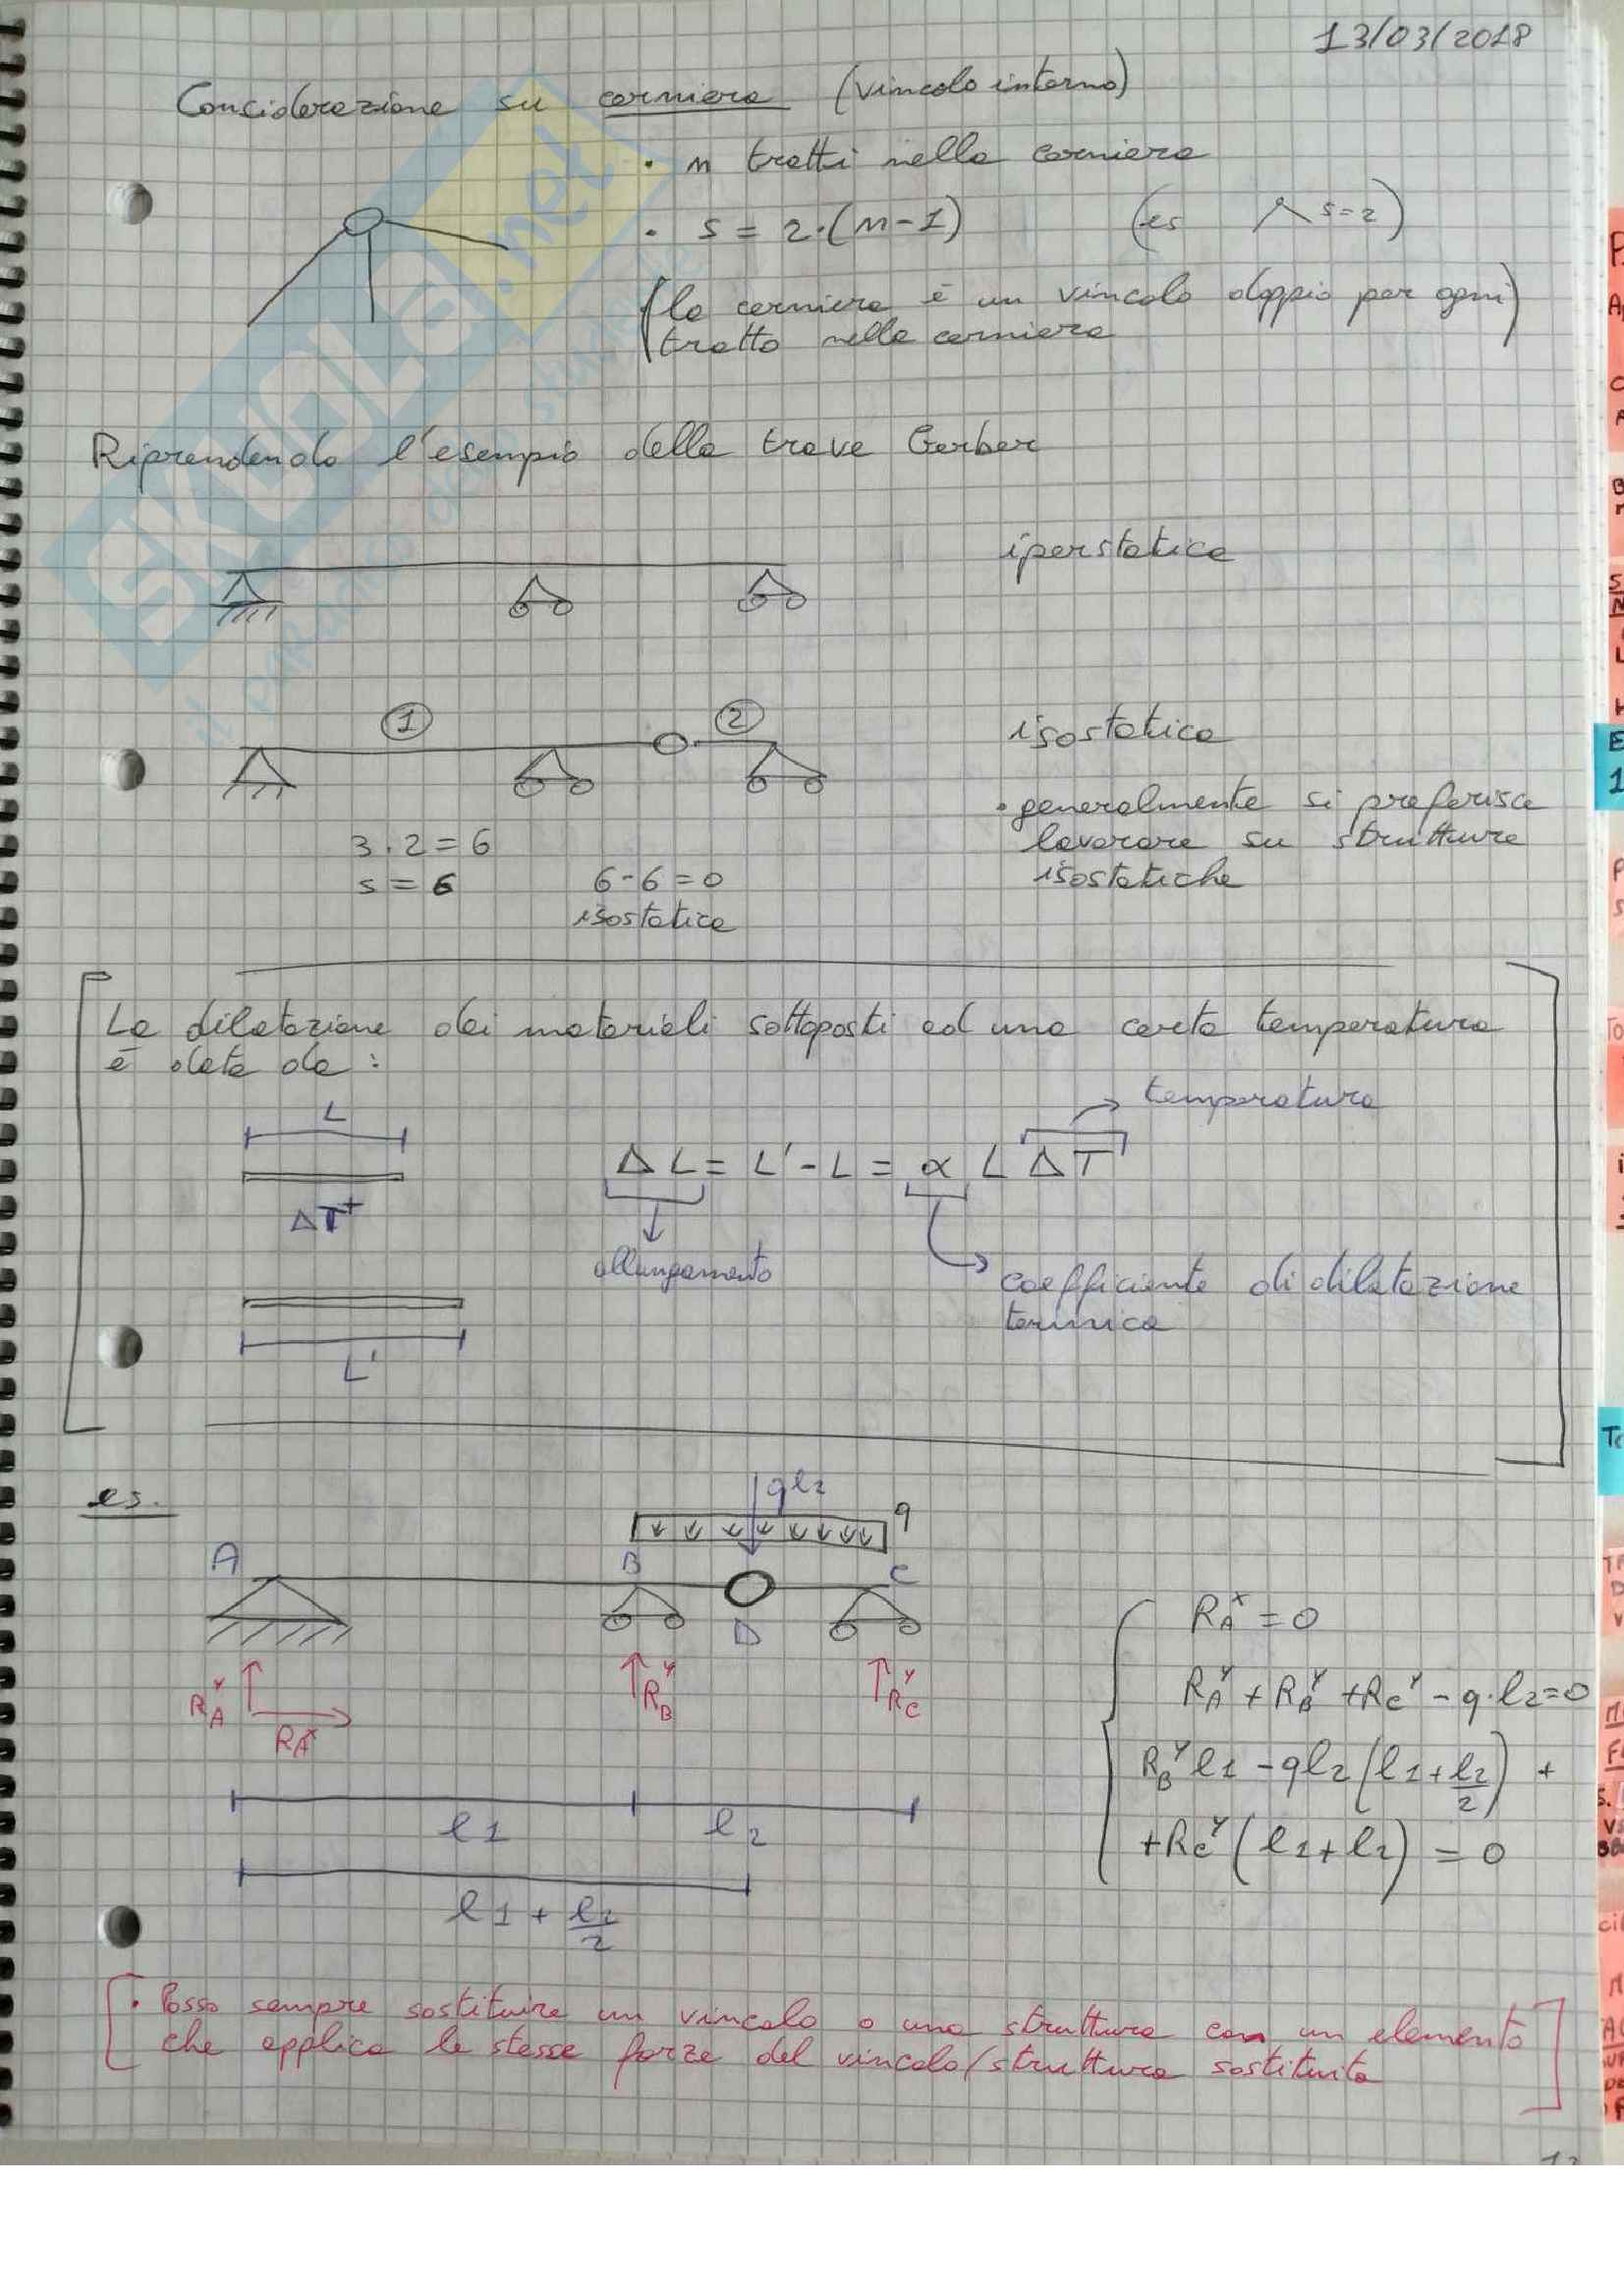 13/03/2018
Considerazione su cerniera (vincolo interno)
• n tratti nella cerniera
• s = 2·(n-1) (es s=2)
(la cerniera è un vincolo doppio per ogni
tratto nella cerniera)
Riprendendo l'esempio della trave Gerber
iperstatica
1 2
isostatica
• generalmente si preferisce
lavorare su strutture
isostatiche
3·2=6
s=6 6-6=0
isostatica
La dilatazione dei materiali sottoposti ad una certa temperatura
è data da:
L
temperatura
ΔL = L'-L = α L ΔT
ΔT+
allungamento
coefficiente di dilatazione
termica
L'
es.
ql2
q
A B C
D
RAy RAx RBy RCy
l1 l2
l1 + l2/2
RAx = 0
RAy + RBy + RCy - q·l2=0
RBy l1 - ql2 (l1 + l2/2) +
+RCy (l1+l2) = 0
• Posso sempre sostituire un vincolo o una struttura con un elemento
che applica le stesse forze del vincolo/struttura sostituita
SKUOLA.net